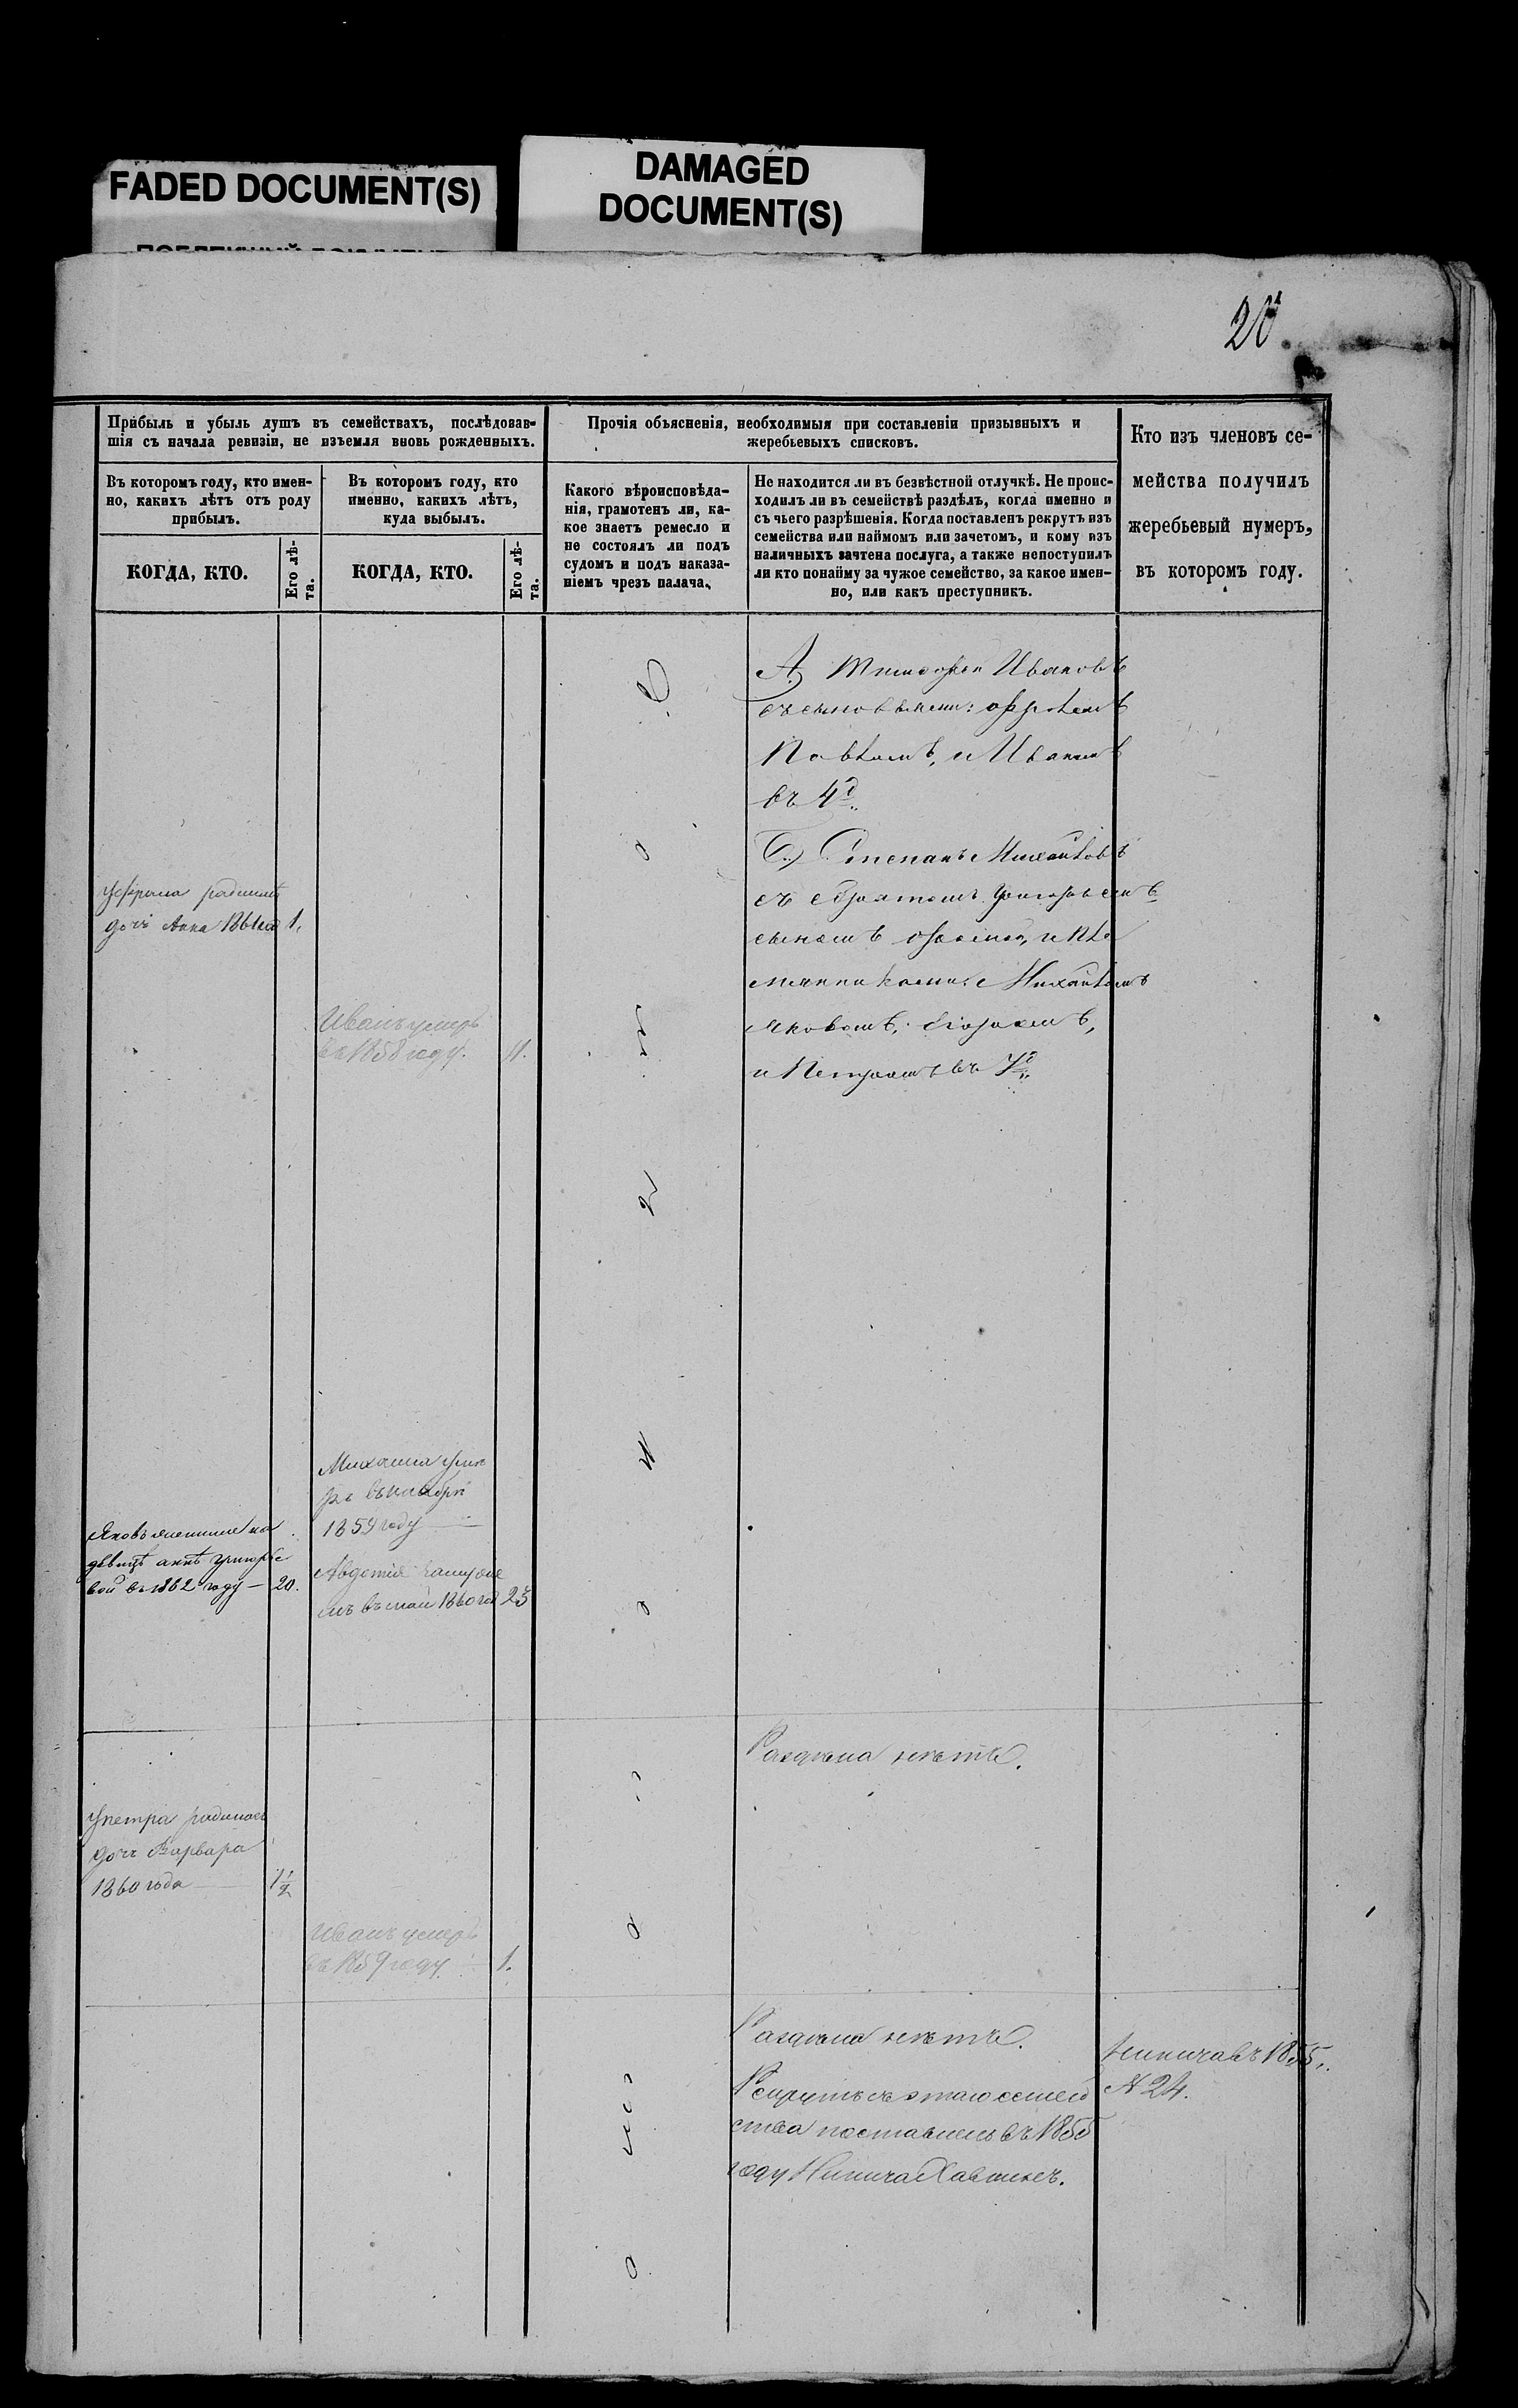 FADED DOCUMENT(S)
DAMAGED
DOCUMENT(S)
20
Прибыль и убыль душъ въ семействахъ, послѣдовав-
шія съ начала ревизіи, не изъемля вновь рожденныхъ.
Въ которомъ году, кто имен-
но, какихъ лѣтъ отъ роду
прибылъ.
Въ которомъ году, кто
именно, какихъ лѣтъ,
куда выбылъ.
КОГДА, КТО.
Его лѣ-
та.
КОГДА, КТО.
Его лѣ-
та.
Прочія объясненія, необходимыя при составленіи призывныхъ и
жеребьевыхъ списковъ.
Какого вѣроисповѣда-
нія, грамотенъ ли, ка-
кое знаетъ ремесло и
не состоялъ ли подъ
судомъ и подъ наказа-
ніемъ чрезъ палача.
Не находится ли въ безвѣстной отлучкѣ. Не проис-
ходилъ ли въ семействѣ раздѣлъ, когда именно и
съ чьего разрѣшенія. Когда поставленъ рекрутъ изъ
семейства или наймомъ или зачетомъ, и кому изъ
наличныхъ зачтена послуга, а также непоступилъ
ли кто понайму за чужое семейство, за какое имен-
но, или какъ преступникъ.
Кто изъ членовъ се-
мейства получилъ
жеребьевый нумеръ,
въ которомъ году.
А, Тимофей Ивановъ
съ сыновьями:
Павломъ, и Иваномъ
въ 4д.
Б,) Степанъ Михайловъ
съ братомъ Григорьемъ
сыномъ и пле
мянниками: Михайломъ
Яковомъ, Егоромъ,
и Петромъ въ 7д.
дочь Анна 1861го 1.
Иванъ умеръ
въ 1858 году. 11.
Михаила уме
ръ въ
1859 году
Авдотія замуже
мъ въ маѣ 1860 год 23
Яковъ женился на
дѣвицѣ Аннѣ Григорье
вой въ 1862 году — 20.
Раздѣла нѣтъ.
У Петра родилась
дочь Варвара
1860 года 1½
Иванъ умеръ
въ 1859 году. 1.
Раздѣла нѣтъ.
Рекрутъ съ этаго семей
ства поставленъ въ 1855
году Никита
Никита въ 1855.
№ 24.